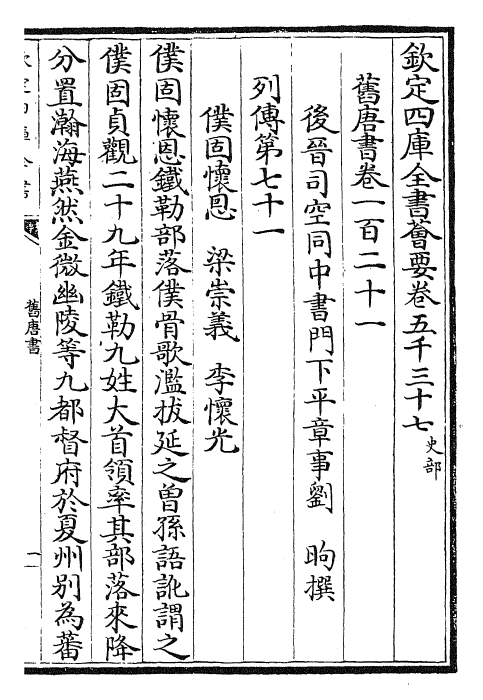 欽定四庫全書薈要卷五千三十七 史部
舊唐書卷一百二十一
後晉司空同中書門下平章事劉 昫撰
列傳第七十一
僕固懷恩 梁崇義 李懷光
僕固懷恩鐵勒部落僕骨歌濫拔延之曾孫語訛謂之
僕固貞觀二十九年鐵勒九姓大首領率其部落來降
分置瀚海燕然金微幽陵等九都督府於夏州别為蕃
舊唐書
一